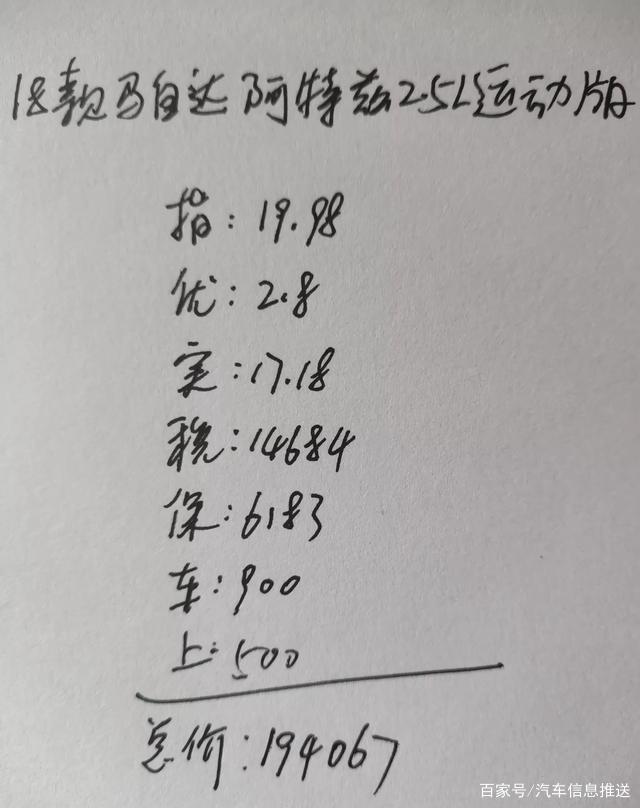 18款马自达阿特兹2.5L运动版
指:19.98
优:2.8
实:17.18
税:14684
保:6183
车:900
上:500
总价:194067
百家号/汽车信息推送